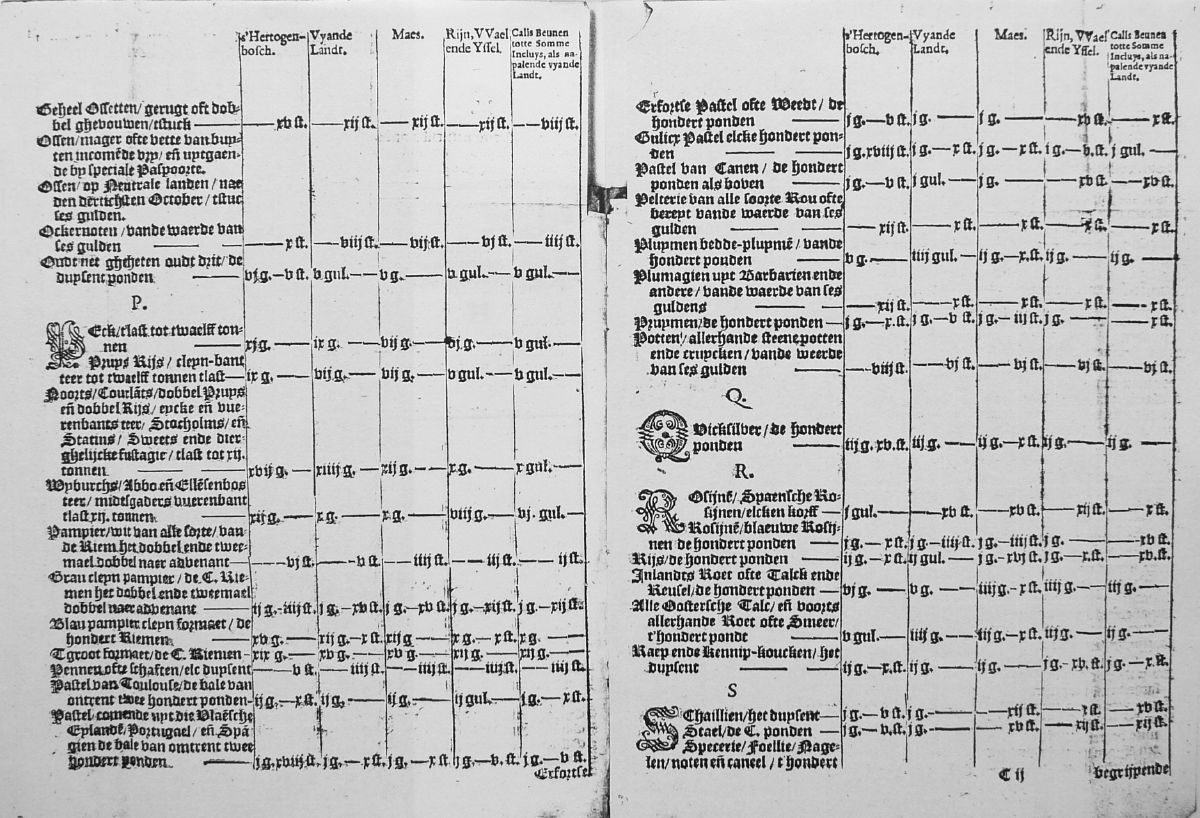 s'Hertogen- Vyande Maes. Rijn, VVael Calis Beunen
bosch. Landt. ende Yssel. totte Somme
Incluys, als na-
palende vyande
Landt.
Geheel Ossetten/ gerugt oft dob-
bel ghebouwen/tstuck — xv st. — xij st. — xij st. — xij st. — viij st.
Ossen/ mager ofte vette van buy-
ten incomēde vry/ eñ uytgaen-
de by speciale Paspoorte.
Ossen/ op Neutrale landen/ nae
den dertichsten October/ tstuc
ses gulden.
Ockernoten/ vande waerde van
ses gulden — x st. — viij st. — vij st. — vj st. — iiij st.
Oudt net gheheten oudt drit/ de
duysent ponden — vj g. — v st. v gul. — v g. — v gul. — v gul. —
P.
PEck/tlast tot twaelff ton-
nen — xij g. — ix g. — vij g. — vj g. — v gul. —
Pruys Rijs/ cleyn-bant
teer tot twaelff tonnen tlast — ix g. — vij g. — vij g. — v gul. — v gul. —
Noorts/ Courlāts/dobbel Pruys
eñ dobbel Rijs/ eycke eñ vue-
renbants teer/ Stocholms/ eñ
Statins/ Sweets ende dier-
ghelijcke fustagie/ tlast tot xij.
tonnen — xvij g. — xiiij g. — xij g. — x g. — x gul. —
Wyburchs/ Abbo eñ Ellesenbos
teer/ midtsgaders vuerenbant
tlast xij. tonnen — xij g. — x g. — x g. — viij g. — vj. gul. —
Pampier/ wit van alle sorte/ van
de Riem het dobbel ende twee-
mael dobbel naer advenant — vj st. — v st. — iiij st. — iij st. — ij st.
Grau cleyn pampier/ de C. Rie-
men het dobbel ende tweemael
dobbel naer advenant — ij g. — iiij st. j g. — xv st. j g. — xv st. j g. — xij st. j g. — xij st.
Blau pampier cleyn formaet/ de
hondert Riemen — xv g. — xij g. — x st. xij g — x g. — x st. x g. —
Tgroot formaet/ de C. Riemen — xix g. — xv g. — xv g. — xij g. — xij g. —
Pennen ofte schaften/ elc duysent — v st. — iiij st. — iiij st. — iiij st. — iiij st.
Pastel van Toulouse/ de bale van
ontrent twee hondert ponden — ij g. — x st. ij g. — ij g. — ij gul. — j g. — x st.
Pastel comende uyt die Vlaēsche
Eylandē/ Portugael/ eñ Spā
gien de bale van omtrent twee
hondert ponden — j g. xviij st. j g. — x st. j g. — x st. j g. — v. st. j g. — v st.
Erfortse
s'Hertogen- Vyande Maes. Rijn, VVaes Calis Beunen
bosch. Landt. ende Yssel. totte Somme
Incluys, als na-
palende vyande
Landt.
Erfortse Pastel ofte Weedt/ de
hondert ponden — j g. — v st. j g. — j g. — xv st. — x st.
Gulicx Pastel elcke hondert pon-
den — j g. xviij st. j g. — x st. j g. — x st. j g. — v. st. j gul. —
Pastel van Canen/ de hondert
ponden als boven — j g. — v st. j gul. — j g. — xv st. — xv st.
Pelterie van alle soorte Rou ofte
bereyt vande waerde van ses
gulden — xij st. — x st. — x st. — x st. — x st.
Pluymen bedde-pluymē/ vande
hondert ponden — v g. — iiij gul. — ij g. — x. st. ij g. — ij g. —
Plumagien uyt Barbarien ende
andere/ vande waerde van ses
guldens — xij st. — x st. — x st. — x st. — x st.
Pruymen/ de hondert ponden — j g. — x. st. j g. — v st. j g. — iij st. j g. — — x st.
Potten/ allerhande steene potten
ende cruycken/ vande weerde
van ses gulden — viij st. — vj st. — vj st. — vj st. — vj st.
Q.
QVicksilver/ de hondert
ponden — iij g. xv. st. iij g. — ij g. — x st. ij g. — ij g. —
R.
ROsijnē/ Spaensche Ro-
sijnen/ elcken korff — j gul. — xv st. — xv st. — xij st. — x st.
Rosijnē/ blaeuwe Rosij-
nen de hondert ponden — j g. — x st. j g. — iiij st. j g. — iiij st. j g. — — xv st.
Rijs/ de hondert ponden — ij g. — x st. ij gul. — j g. — xvj st. j g. — x. st. — xv. st.
Inlandts Roet ofte Talck ende
Reusel/ de hondert ponden — vj g. — v g. — iiij g. — x st. iiij g. — iij g. —
Alle Oostersche Talc/ eñ voorts
allerhande Roet ofte Smeer/
t'hondert pondt — v gul. — iiij g. — iij g. — x st. iij g. — ij g. —
Raep ende Kennip-koucken/ het
duysent — ij g. — x. st. ij g. — ij g. — j g. — xv. st. j g. — x. st.
S
SChaillien/ het duysent — j g. — v st. j g. — — xij st. — x st. — xv st.
Stael/ de C. ponden — j g. — v. st. j g. — — xv st. — xij st. — xij st.
Specerie/ Foellie/ Nage-
len/ noten eñ caneel/ t'hondert
C ij begrijpende